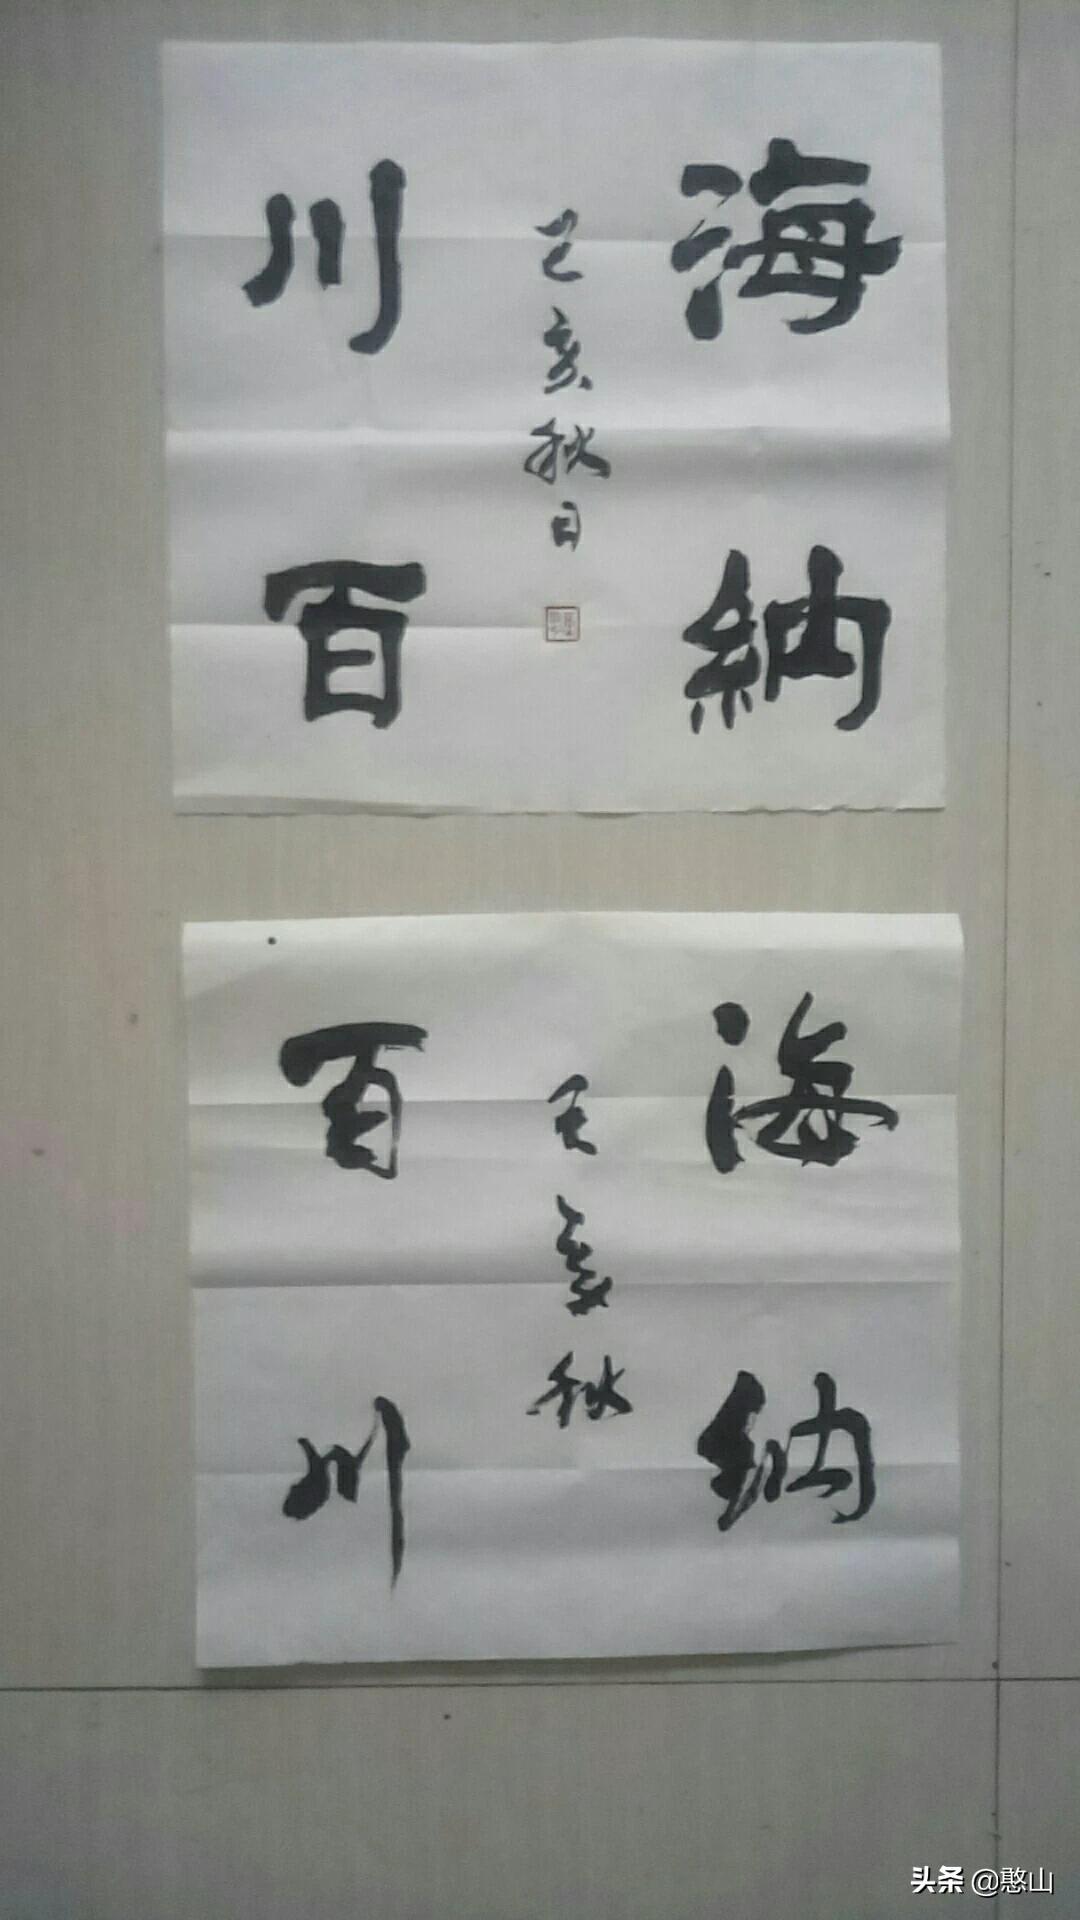 海納
己亥秋日
川百
海納
己亥秋
百川
头条 @憨山